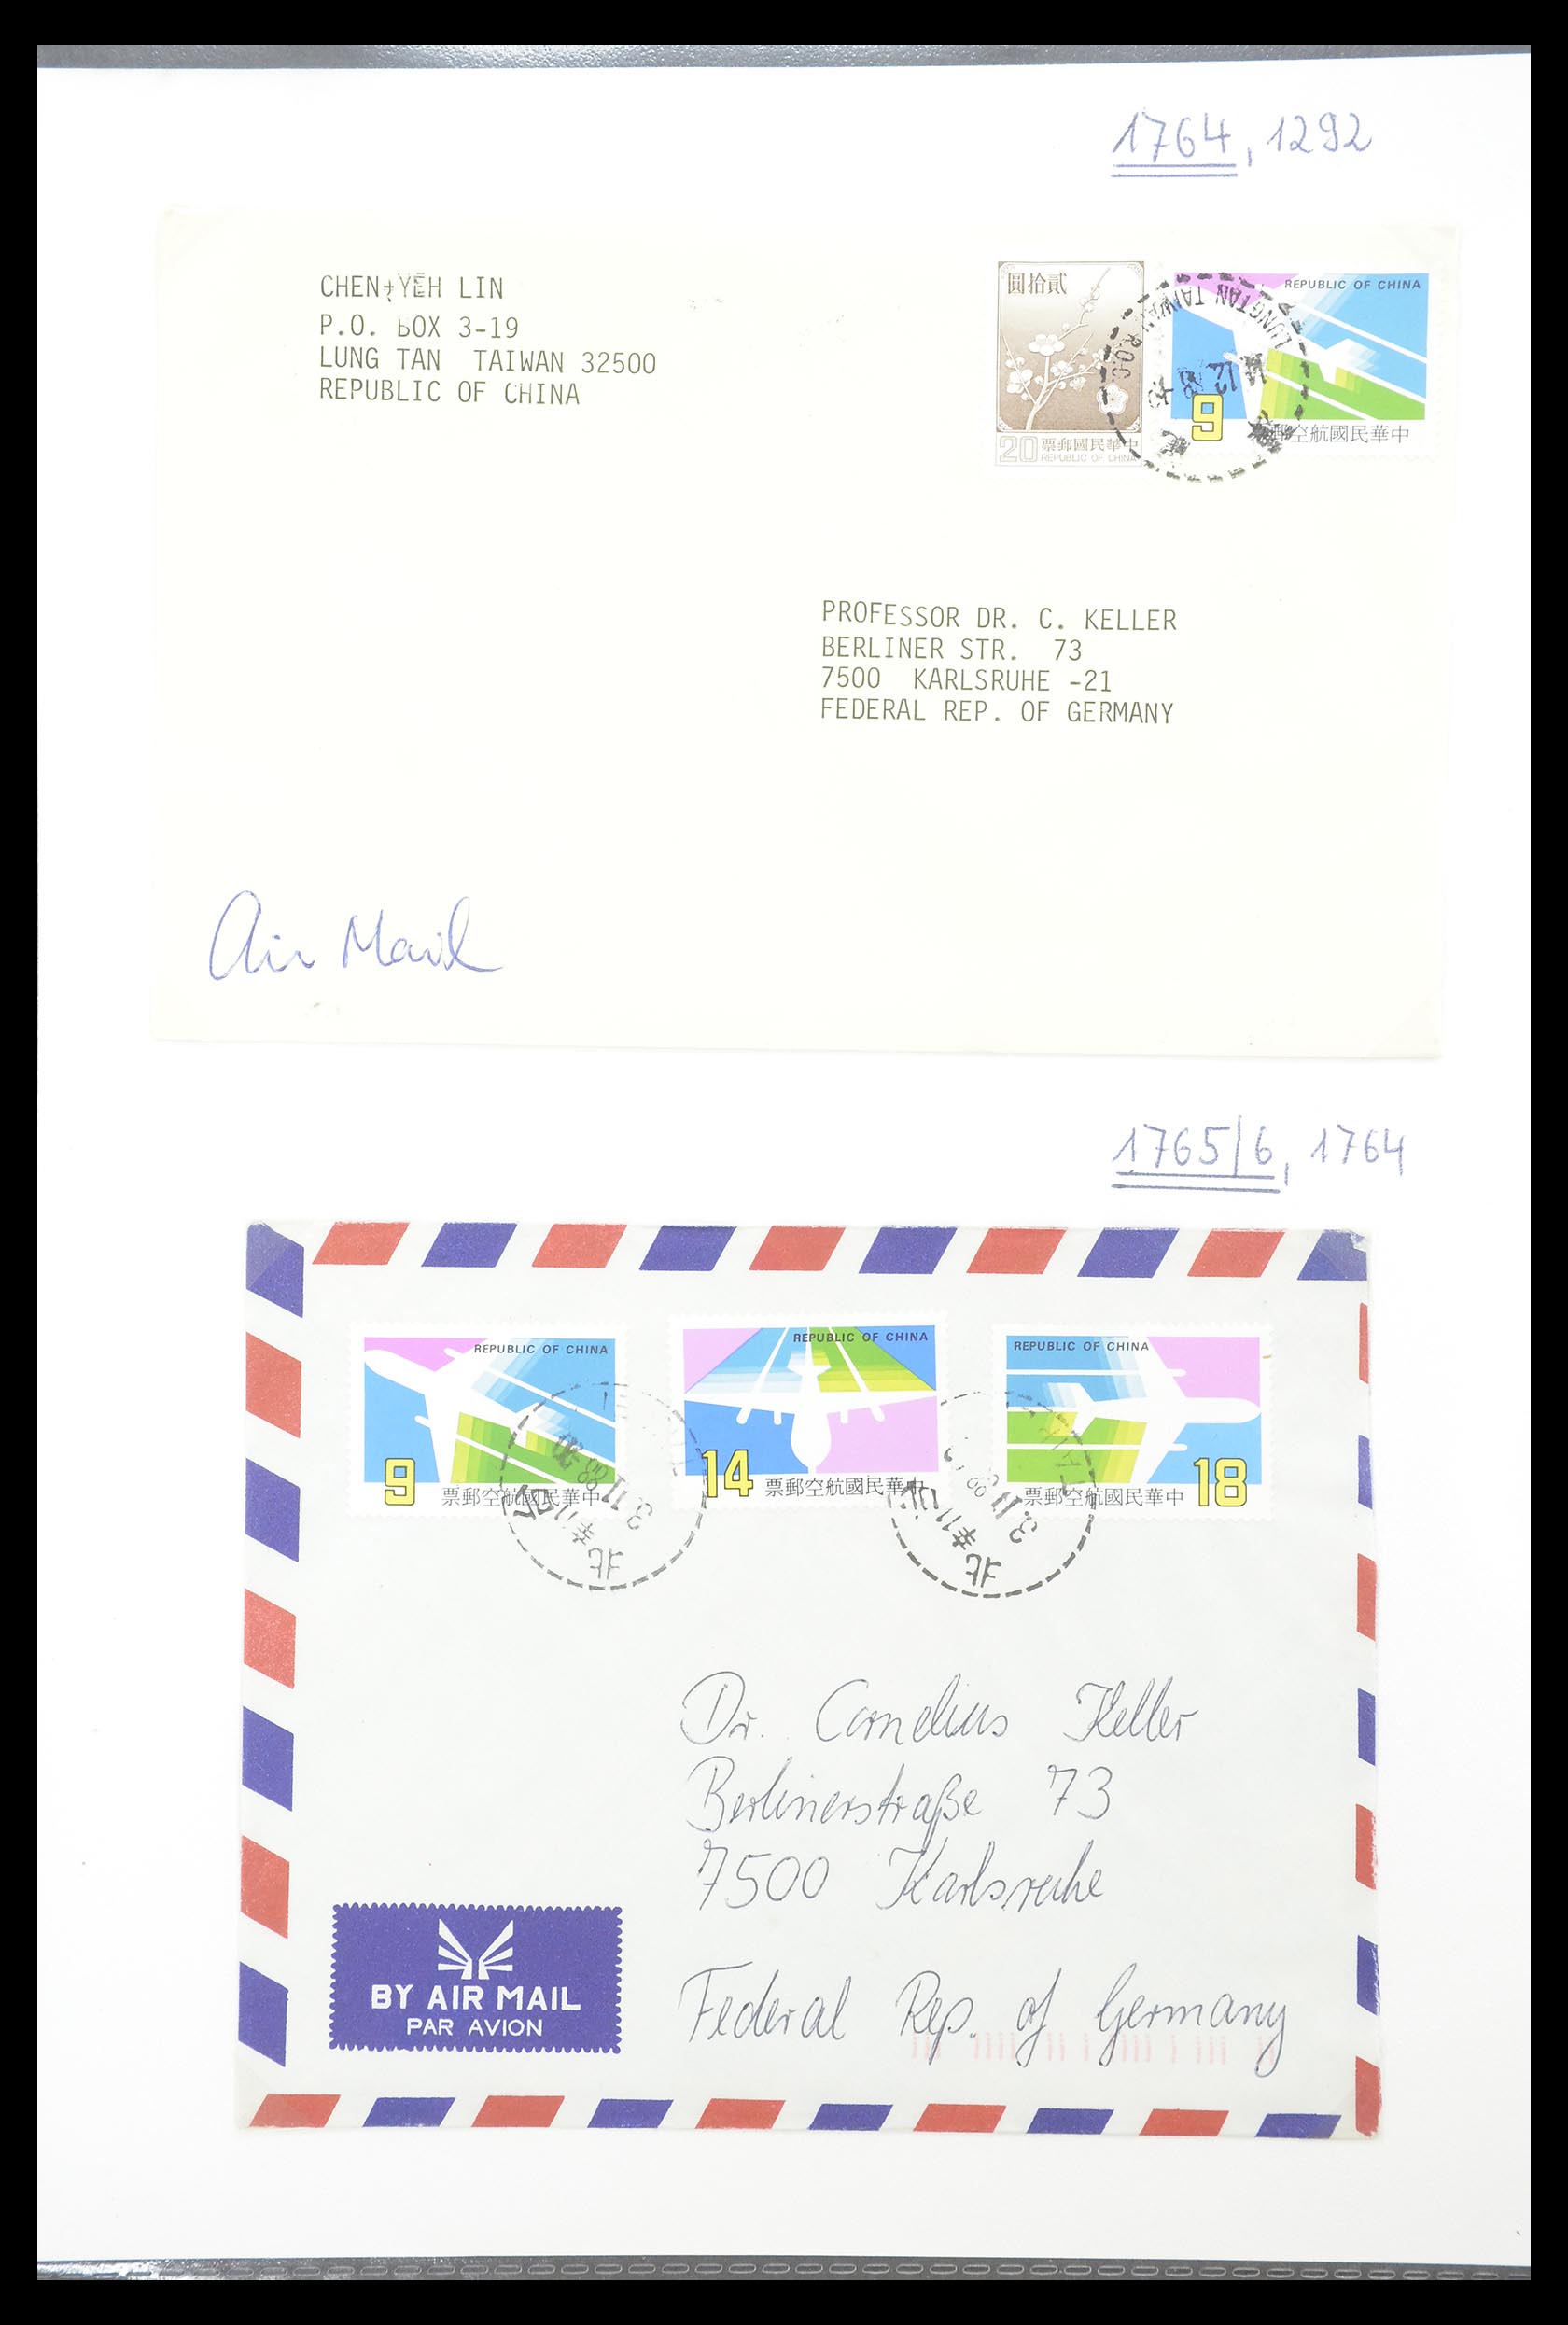 1764, 1292
CHEN-YEH LIN
P.O. BOX 3-19
LUNG TAN TAIWAN 32500
REPUBLIC OF CHINA
圓拾貳
20 票郵國民華中
REPUBLIC OF CHINA
REPUBLIC OF CHINA
9 票郵空航國民華中
LUNGTAN TAIWAN R.O.C.
14.12.88
PROFESSOR DR. C. KELLER
BERLINER STR. 73
7500 KARLSRUHE -21
FEDERAL REP. OF GERMANY
Air Mail
1765/6, 1764
REPUBLIC OF CHINA
9 票郵空航國民華中
REPUBLIC OF CHINA
14 票郵空航國民華中
REPUBLIC OF CHINA
票郵空航國民華中 18
3.11.88
北
3.11.88
北
Dr. Cornelius Keller
Berlinerstraße 73
7500 Karlsruhe
Federal Rep. of Germany
BY AIR MAIL
PAR AVION